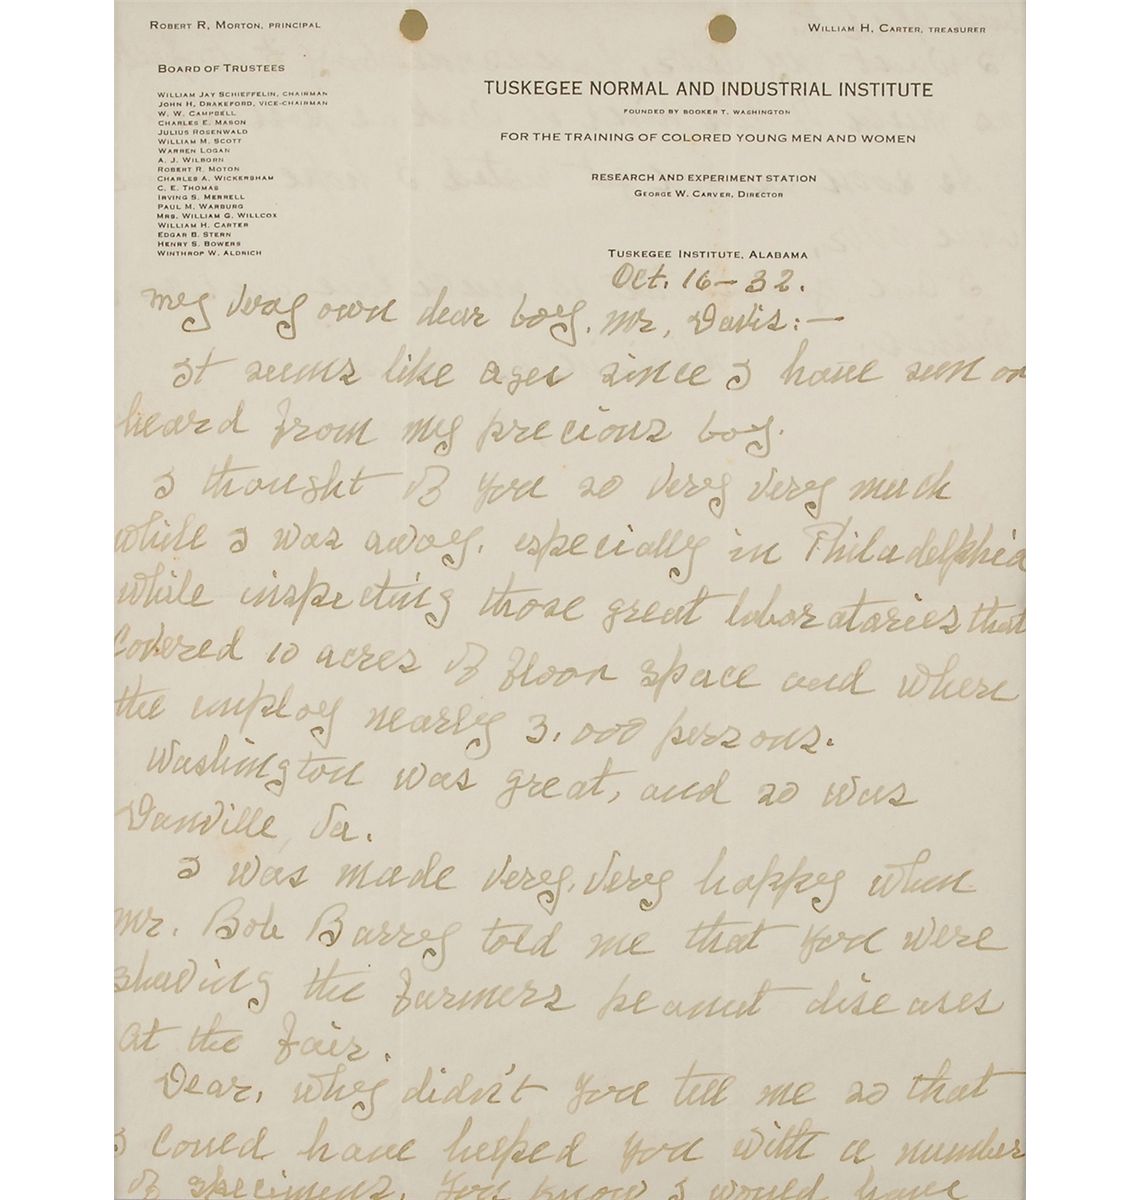 ROBERT R, MORTON, PRINCIPAL
WILLIAM H, CARTER, TREASURER
BOARD OF TRUSTEES
WILLIAM JAY SCHIEFFELIN, CHAIRMAN
JOHN H, DRAKEFORD, VICE-CHAIRMAN
W. W. CAMPBELL
CHARLES E. MASON
JULIUS ROSENWALD
WILLIAM M. SCOTT
WARREN LOGAN
A. J. WILBORN
ROBERT R. MOTON
CHARLES A. WICKERSHAM
C. E. THOMAS
IRVING S. MERRELL
PAUL M. WARBURG
MRS. WILLIAM G. WILLCOX
WILLIAM H. CARTER
EDGAR B. STERN
HENRY S. BOWERS
WINTHROP W. ALDRICH
TUSKEGEE NORMAL AND INDUSTRIAL INSTITUTE
FOUNDED BY BOOKER T. WASHINGTON
FOR THE TRAINING OF COLORED YOUNG MEN AND WOMEN
RESEARCH AND EXPERIMENT STATION
GEORGE W. CARVER, DIRECTOR
TUSKEGEE INSTITUTE, ALABAMA
Oct. 16-32.
My very own dear boy, Mr, Davis:—
It seems like ages since I have seen or
heard from my precious boy.
I thought of you so very very much
while I was away, especially in Philadelphia
while inspecting those great laboratories that
Covered 10 acres of floor space and where
the employ nearly 3,000 persons.
Washington was great, and so was
Danville, Va.
I was made very, very happy when
Mr. Bob Barry told me that you were
showing the farmers peanut diseases
at the fair.
Dear, why didn't you tell me so that
I could have helped you with a number
of specimens, You know I would have